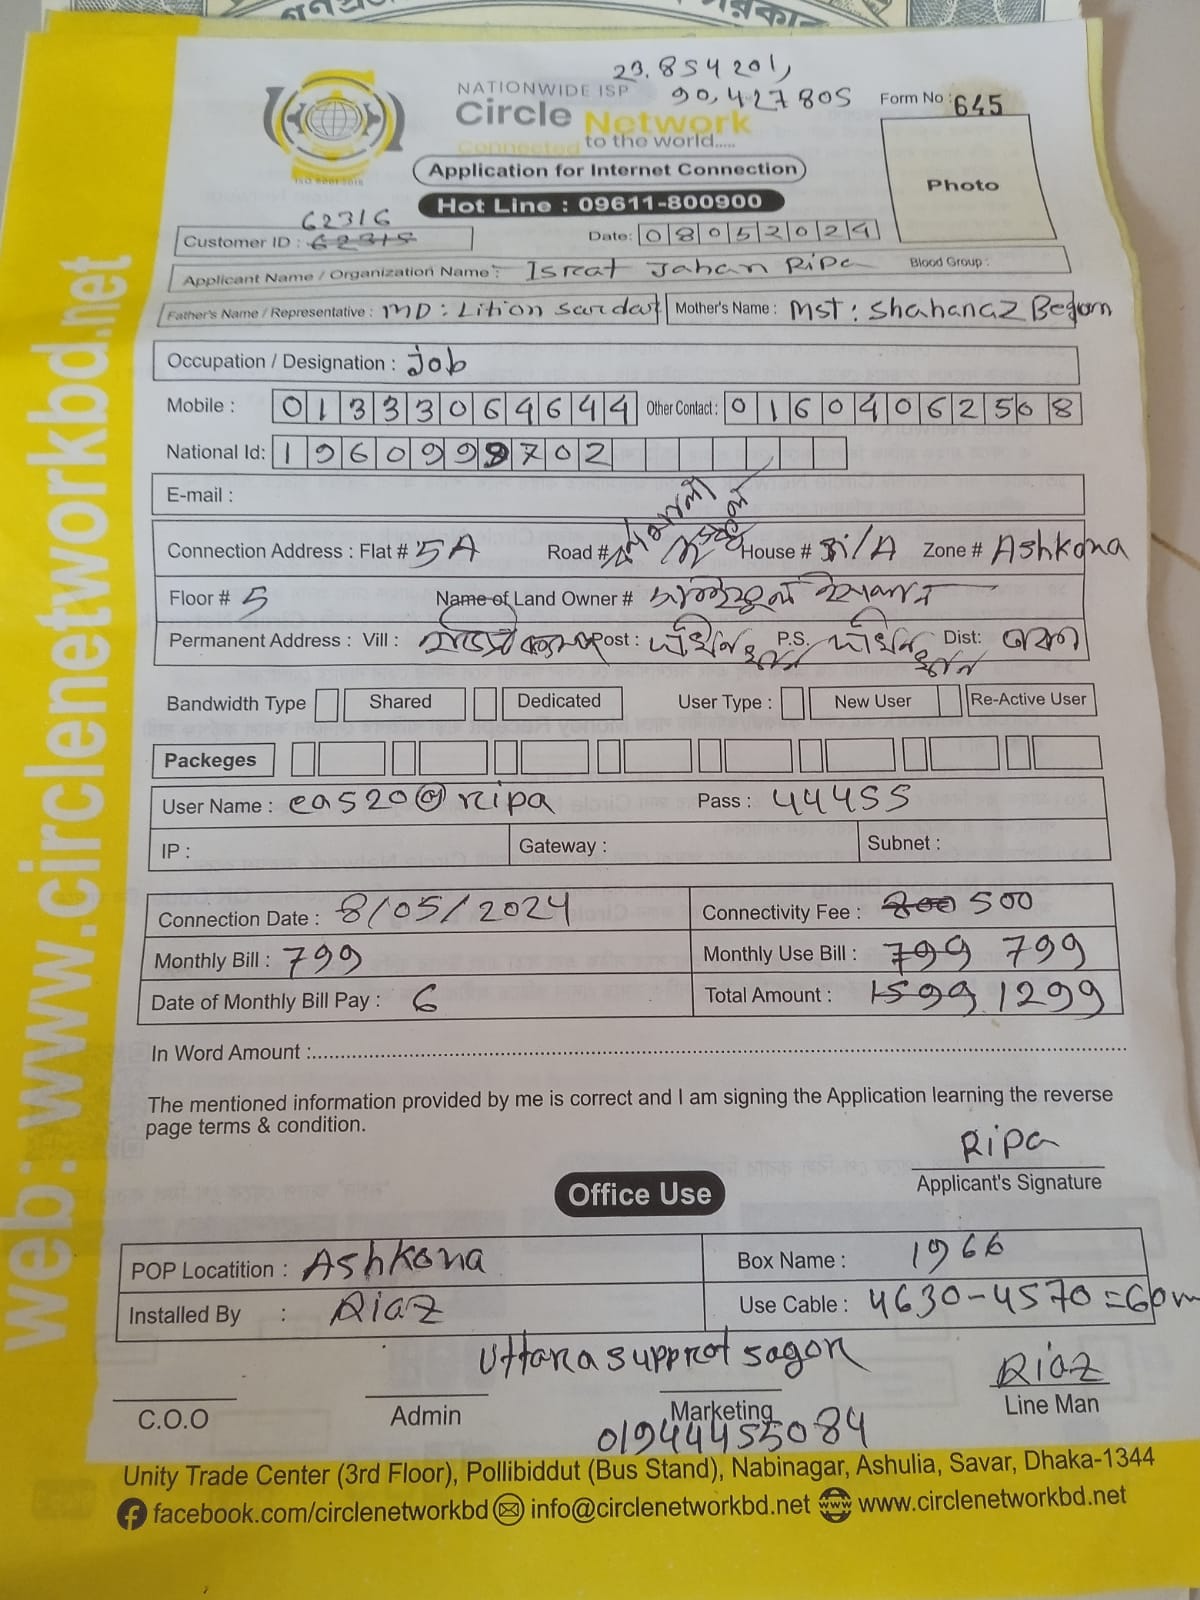 23.854201,
NATIONWIDE ISP 90,427805 Form No : 645
Circle Network
Connected to the world.....
ISO 9001:2015
Application for Internet Connection
Photo
Hot Line : 09611-800900
62316
Customer ID : 62315 Date: 08052024
Applicant Name / Organization Name : Israt Jahan Ripa Blood Group :
Father's Name / Representative : MD : Lition Sardar Mother's Name : Mst : Shahanaz Begom
Occupation / Designation : Job
Mobile : 01333064644 Other Contact : 01604062508
National Id: 1960998702
E-mail :
Connection Address : Flat # 5A Road # House # /A Zone # Ashkona
Floor # 5 Name of Land Owner #
Permanent Address : Vill : Post : P.S. Dist:
Bandwidth Type Shared Dedicated User Type : New User Re-Active User
Packeges
User Name : ea520@ripa Pass : 44455
IP : Gateway : Subnet :
Connection Date : 8/05/2024 Connectivity Fee : 800 500
Monthly Bill : 799 Monthly Use Bill : 799 799
Date of Monthly Bill Pay : 6 Total Amount : 1599 1299
In Word Amount :
The mentioned information provided by me is correct and I am signing the Application learning the reverse
page terms & condition.
Ripa
Applicant's Signature
Office Use
POP Locatition : Ashkona Box Name : 1966
Installed By : Riaz Use Cable : 4630-4570=60m
Uttara supprot sagor Riaz
C.O.O Admin Marketing Line Man
01944455084
Unity Trade Center (3rd Floor), Pollibiddut (Bus Stand), Nabinagar, Ashulia, Savar, Dhaka-1344
facebook.com/circlenetworkbd info@circlenetworkbd.net www.circlenetworkbd.net
web: www.circlenetworkbd.net